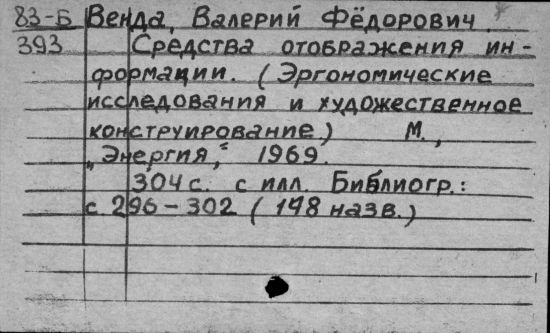 83-Б Венда, Валерий Фёдорович.
393 Средства отображения ин-
формации. (Эргономические
исследования и художественное
конструирование) М.,
„Энергия," 1969.
304 с. с илл. Библиогр.:
с. 296-302 (148 назв.)